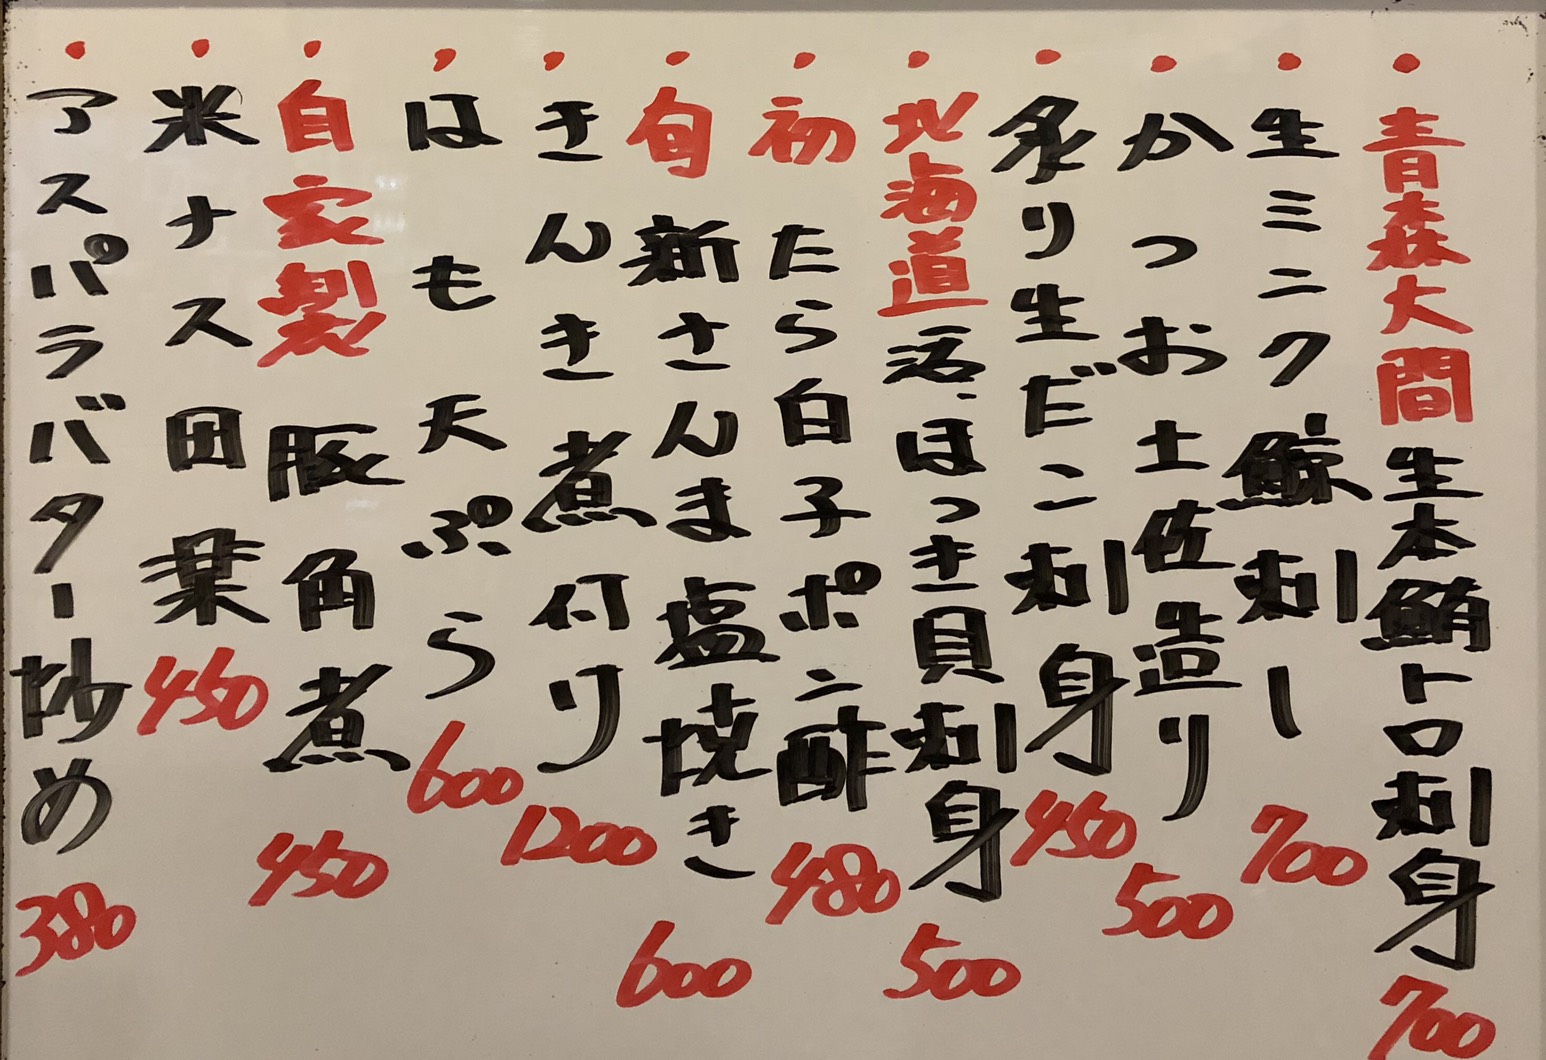 ・青森大間生本鮪トロ刺身700
・生ミンク鯨刺し700
・かつお土佐造り500
・炙り生だこ刺身450
・北海道活ほっき貝刺身500
・初たら白子ポン酢480
・旬新さんま塩焼き600
・きんき煮付け1200
・はも天ぷら600
・自家製豚角煮450
・米ナス田楽450
・アスパラバター炒め380